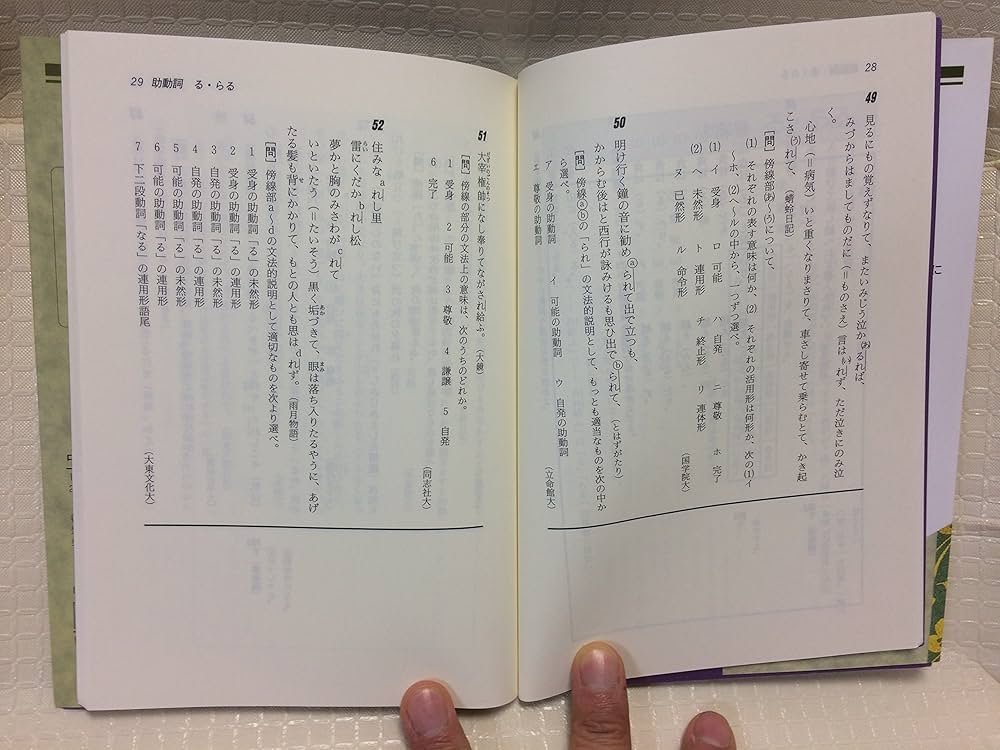 28
49
見るにもの覚えずなりて、またいみじう泣か(あ)るれば、
みづからはましてものだに(=ものさえ)言は(い)れず、ただ泣きにのみ泣
く。
心地(=病気)いと重くなりまさりて、車さし寄せて乗らむとて、かき起
こさ(う)れて、(蜻蛉日記)
[問] 傍線部(あ)〜(う)について、
(1) それぞれの表す意味は何か、(2) それぞれの活用形は何形か、次の(1)イ
〜ホ、(2)ヘ〜ルの中から、一つずつ選べ。
(1) イ 受身 ロ 可能 ハ 自発 ニ 尊敬 ホ 完了
(2) ヘ 未然形 ト 連用形 チ 終止形 リ 連体形
ヌ 已然形 ル 命令形
(国学院大)
50
明け行く鐘の音に勧めⓐられて出で立つも、
かからむ後はと西行が詠みけるも思ひ出でⓑられて、(とはずがたり)
[問] 傍線ⓐⓑの「られ」の文法的説明として、もっとも適当なものを次の中か
ら選べ。
ア 受身の助動詞 イ 可能の助動詞 ウ 自発の助動詞
エ 尊敬の助動詞
(立命館大)
29 助動詞 る・らる
51
大宰権帥になし奉りてながされ給ふ。(大鏡)
[問] 傍線の部分の文法上の意味は、次のうちのどれか。
1 受身 2 可能 3 尊敬 4 謙譲 5 自発
6 完了
(同志社大)
52
住みなaれし里
雷にくだかbれし松
夢かと胸のみさわがcれて
いといたう(=たいそう)黒く垢づきて、眼は落ち入りたるやうに、あげ
たる髪も背にかかりて、もとの人とも思はdれず。(雨月物語)
[問] 傍線部a〜dの文法的説明として適切なものを次より選べ。
1 受身の助動詞「る」の未然形
2 受身の助動詞「る」の連用形
3 自発の助動詞「る」の未然形
4 自発の助動詞「る」の連用形
5 可能の助動詞「る」の未然形
6 可能の助動詞「る」の連用形
7 下二段動詞「なる」の連用形語尾
(大東文化大)